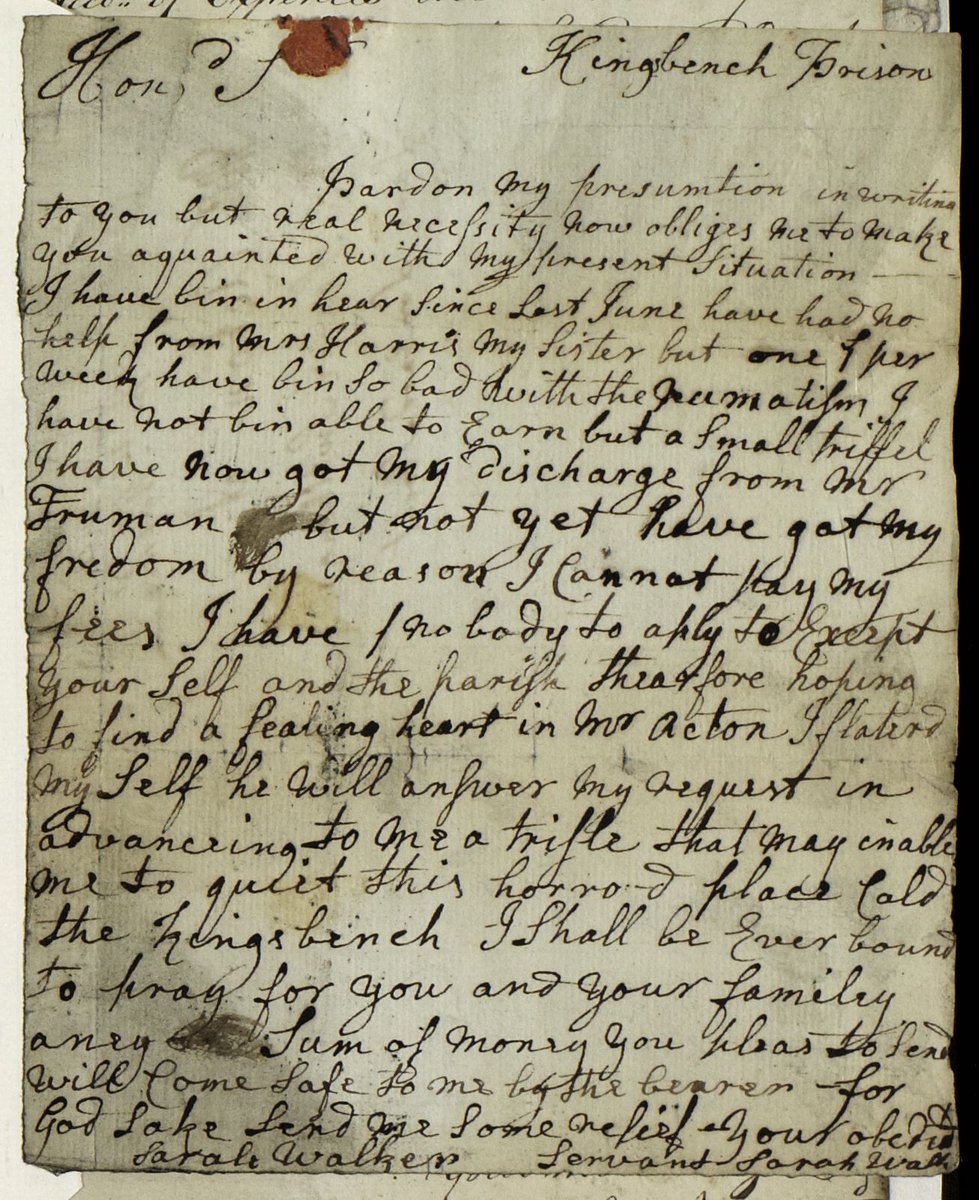 Hon,d S
Kingsbench Prison
Pardon my presumtion in writing
to you but real necessity now obliges me to make
you aquainted with my present Situation
I have bin in hear Since Last June have had no
help from mrs Harris my Sister but one S per
week have bin So bad with the reumatism I
have not bin able to Earn but a Small triffel
I have now got my discharge from mr
Truman but not yet have got my
fredom by reason I Cannot pay my
fees I have nobody to aply to Except
your Self and the parish thearfore hoping
to find a fealing heart in Mr Acton I flaterd
my Self he will answer my request in
advanceing to me a trifle that may inable
me to quiet this horro-d place Cald
the Kingsbench I Shall be Ever bound
to pray for you and your familey
aney Sum of money you pleas to Send
will Come Safe to me by the bearer for
God Sake Send me Some relief your obedint
Sarah Walker Servant Sarah Walk